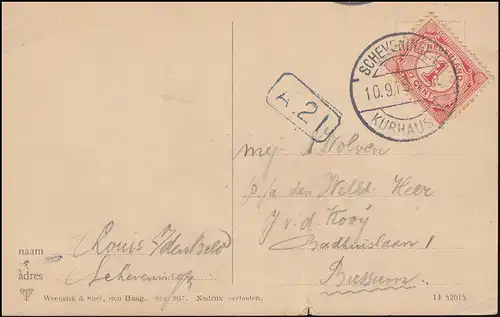 SCHEVENINGEN
10.9.13
KURHAUS
NEDERLAND
1
CENT
A 21
mej. A Wolven
p/a den Welsd. Heer
J v. d. Kooy
Badhuislaan 1
Bussum.
naam Louis
adres Scheveningen
Weenenk & Snel, den Haag. Nadruk verboden.
14 52615